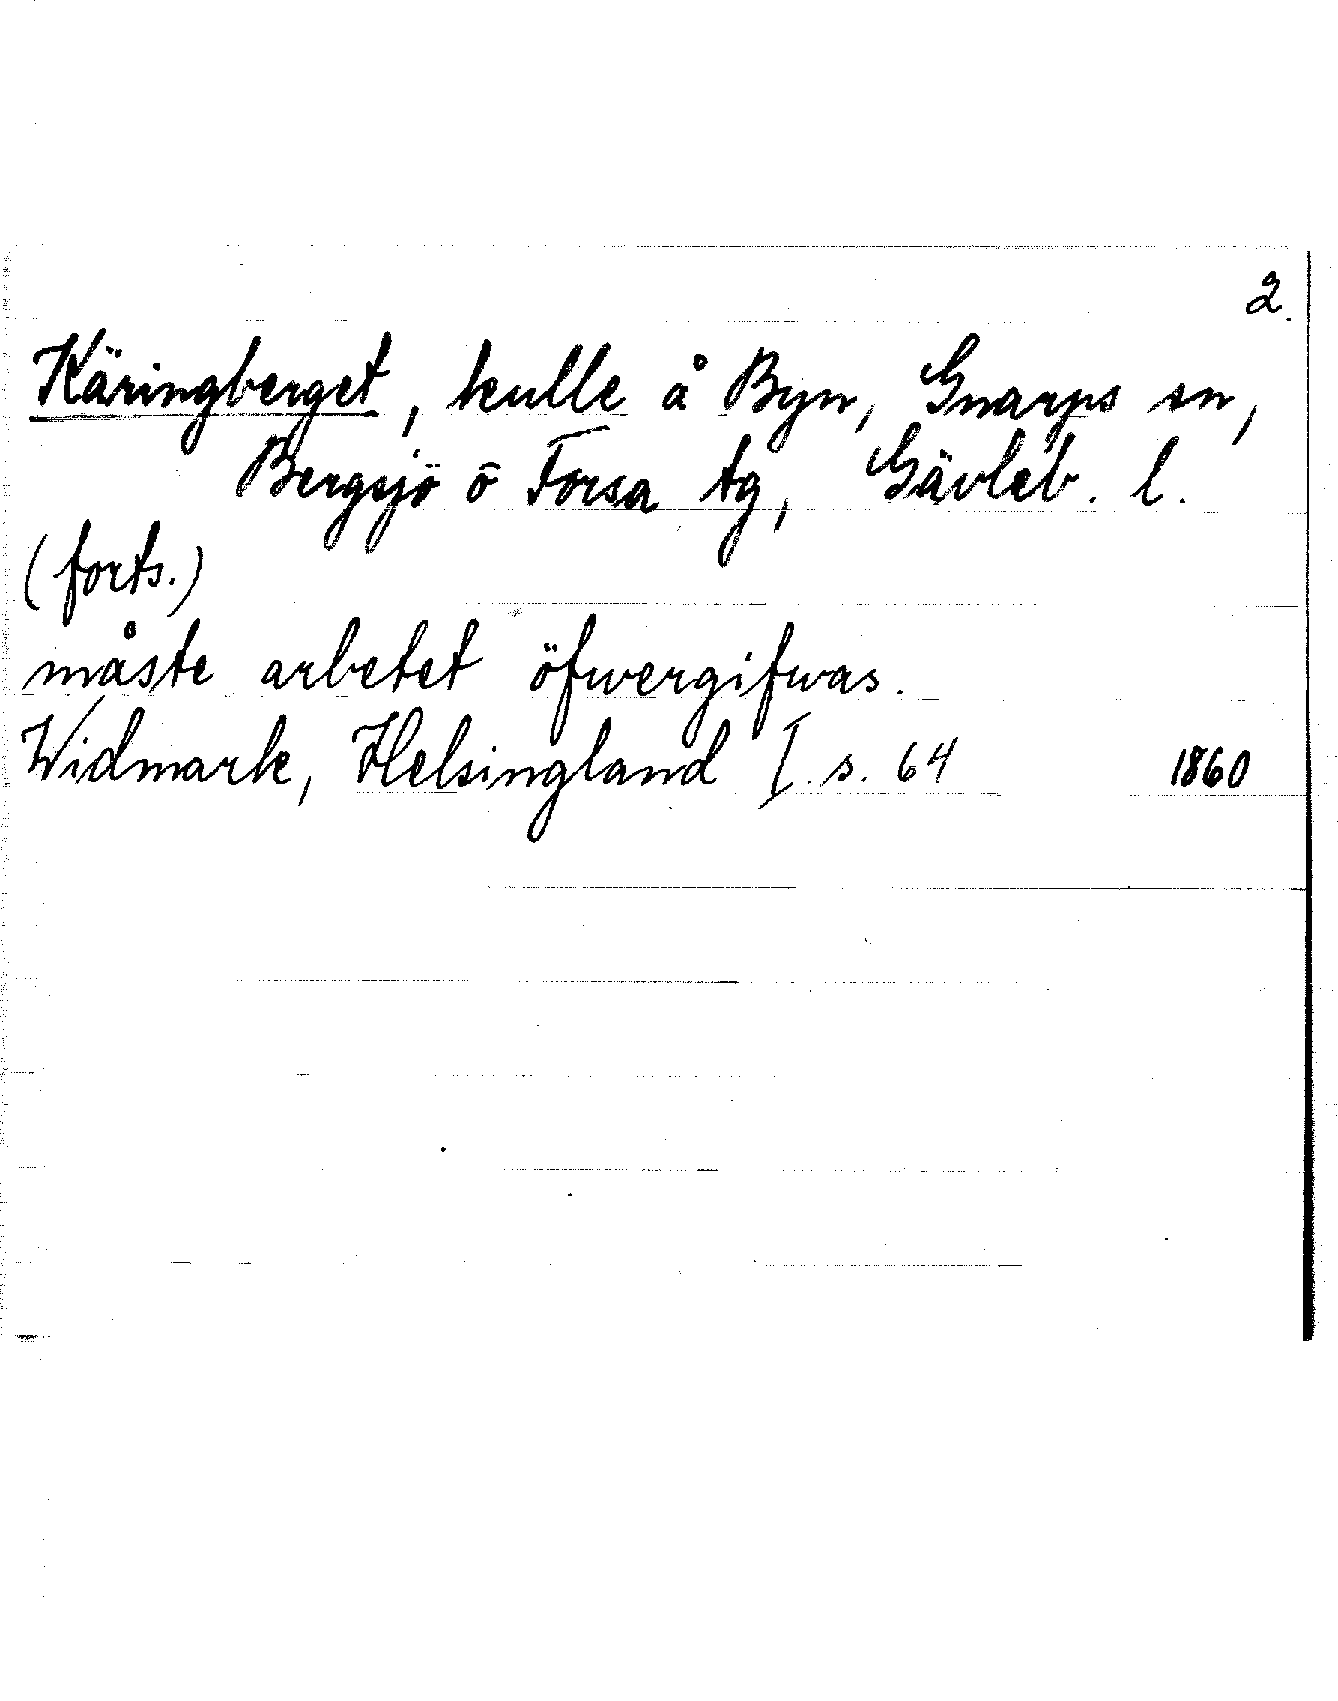 2.
Käringberget, kulle å Byn, Gnarps sn,
Bergsjö o Forsa tg, Gävleb. l.
(forts.)
måste arbetet öfwergifwas.
Widmark, Helsingland I s. 64 1860